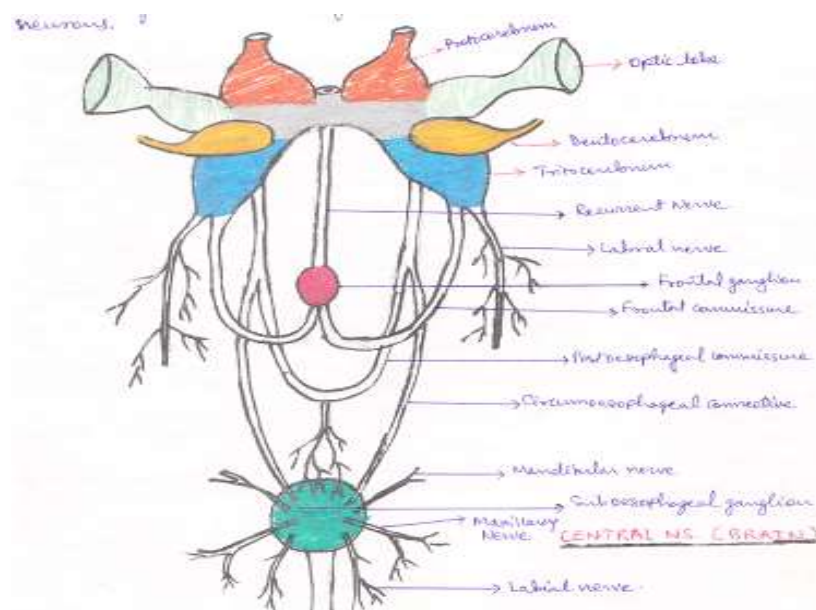 neurons.
Protocerebrum
Optic lobe
Deutocerebrum
Tritocerebrum
Recurrent Nerve
Labral nerve
Frontal ganglion
Frontal commissure
Postoesophageal commissure
Circumoesophageal connective
Mandibular nerve
Suboesophageal ganglion
Maxillary
Nerve
CENTRAL NS (BRAIN)
Labial nerve.